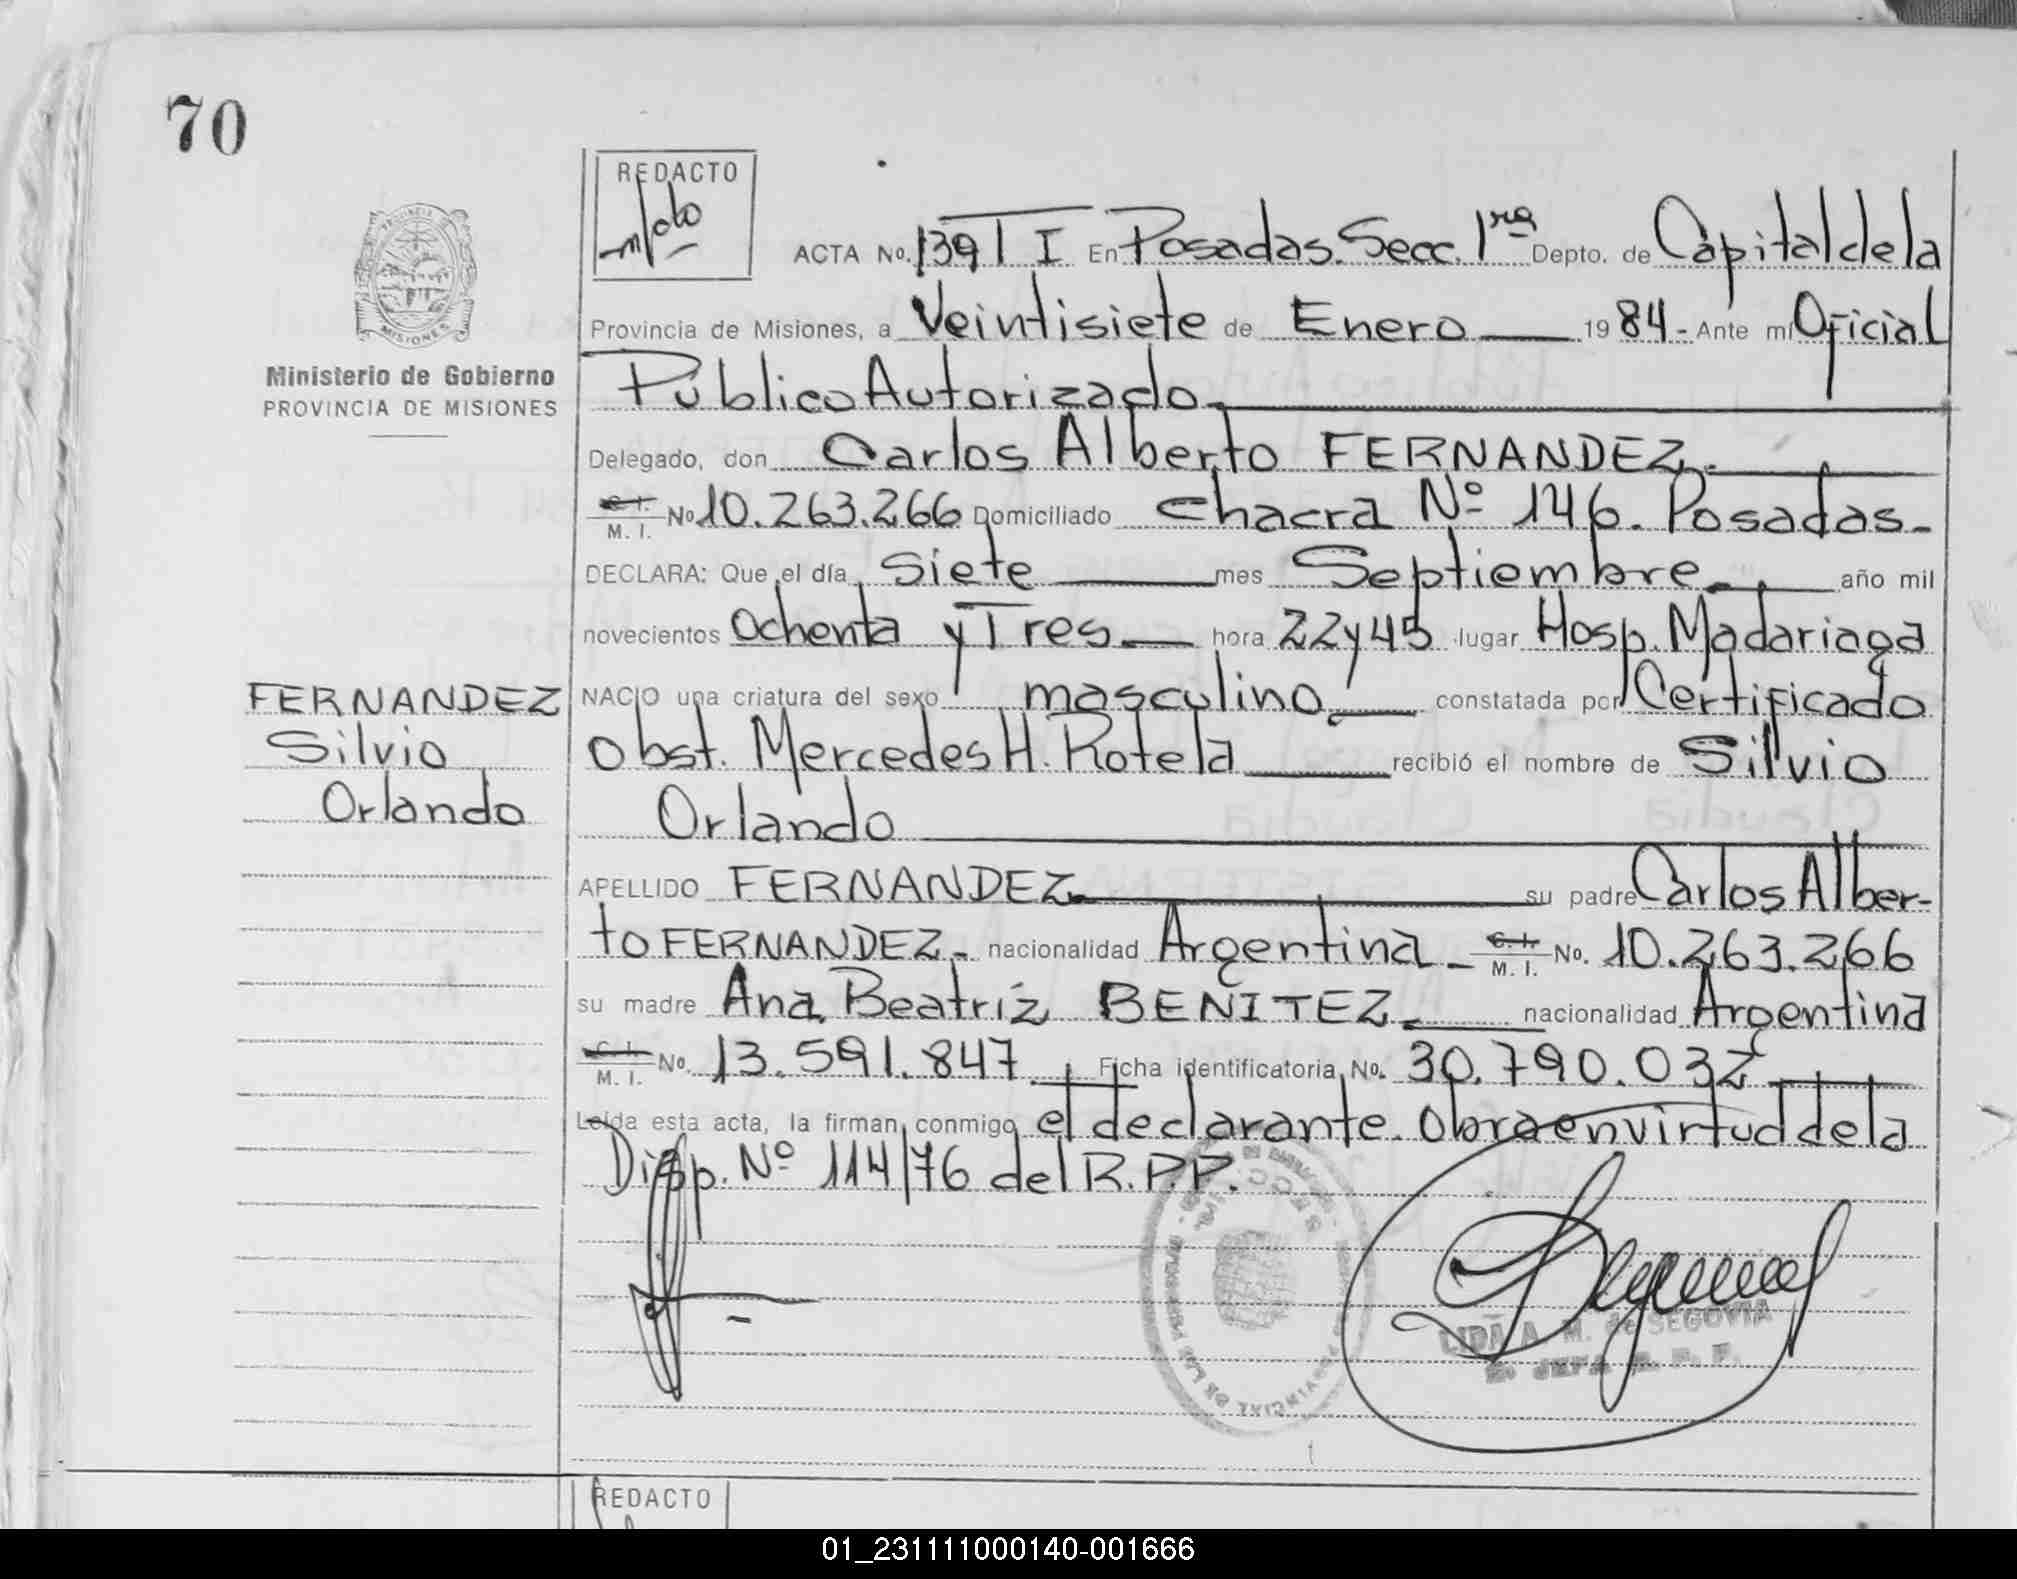 70
REDACTO
ACTA No. 139 T I En Posadas. Secc. 1ra Depto. de Capital de la
Provincia de Misiones, a Veintisiete de Enero 1984.- Ante mí Oficial
Público Autorizado.
Ministerio de Gobierno
PROVINCIA DE MISIONES
Delegado, don Carlos Alberto FERNANDEZ.
C. I. M. I. No 10.263.266 Domiciliado Chacra Nº 146. Posadas.
DECLARA: Que el día Siete mes Septiembre. año mil
novecientos Ochenta y Tres. hora 22 y 45 lugar Hosp. Madariaga
NACIO una criatura del sexo masculino. constatada por Certificado
Obst. Mercedes H. Rotela recibió el nombre de Silvio
Orlando
FERNANDEZ
Silvio
Orlando
APELLIDO FERNANDEZ. su padre Carlos Alber-
to FERNANDEZ. nacionalidad Argentina. C. I. M. I. No. 10.263.266
su madre Ana Beatriz BENITEZ. nacionalidad Argentina
C. I. M. I. No. 13.591.847. Ficha identificatoria No. 30.790.032
Leída esta acta, la firman conmigo el declarante. Obra en virtud de la
Disp. Nº 114/76 del R.P.P.
LIDA A. M. de SEGOVIA
JEFA R. P. P.
REDACTO
01_231111000140-001666